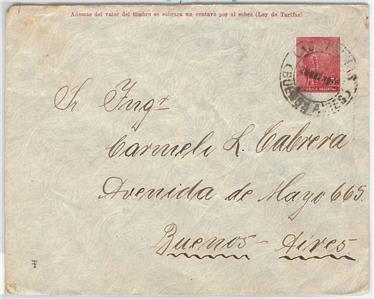 Además del valor del timbre se cobrará un centavo por el sobre (Ley de Tarifas)
Sr. Ingr
Carmelo L. Cabrera
Avenida de Mayo 665.
Buenos-Aires